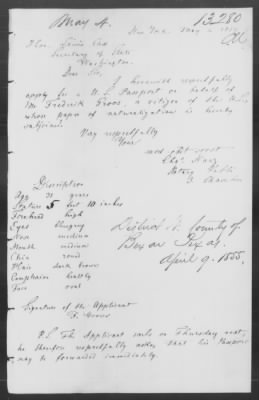 May 4.
13280
New York May 2
Hon. Lewis Cass
Secretary of State
Washington.
Dear Sir,
I herewith respectfully
apply for a U. S. Passport on behalf of
Mr. Fredrick Groos, a citizen of the U. S.,
whose paper of naturalization is hereby
Very respectfully
Your
most obdt servt
Chas
Notary Public
Description
Age 31 years
Stature 5 feet 10 inches
Forehead high
Eyes
Nose medium
Mouth medium
Chin round
Hair dark brown
Complexion healthy
Face oval
District Ct. County of
Bexar Texas.
April 9. 1855.
Signature of the Applicant
F. Groos
P.S. The Applicant sails on Thursday next,
he therefore respectfully asks that his Passport
may be forwarded immediately.